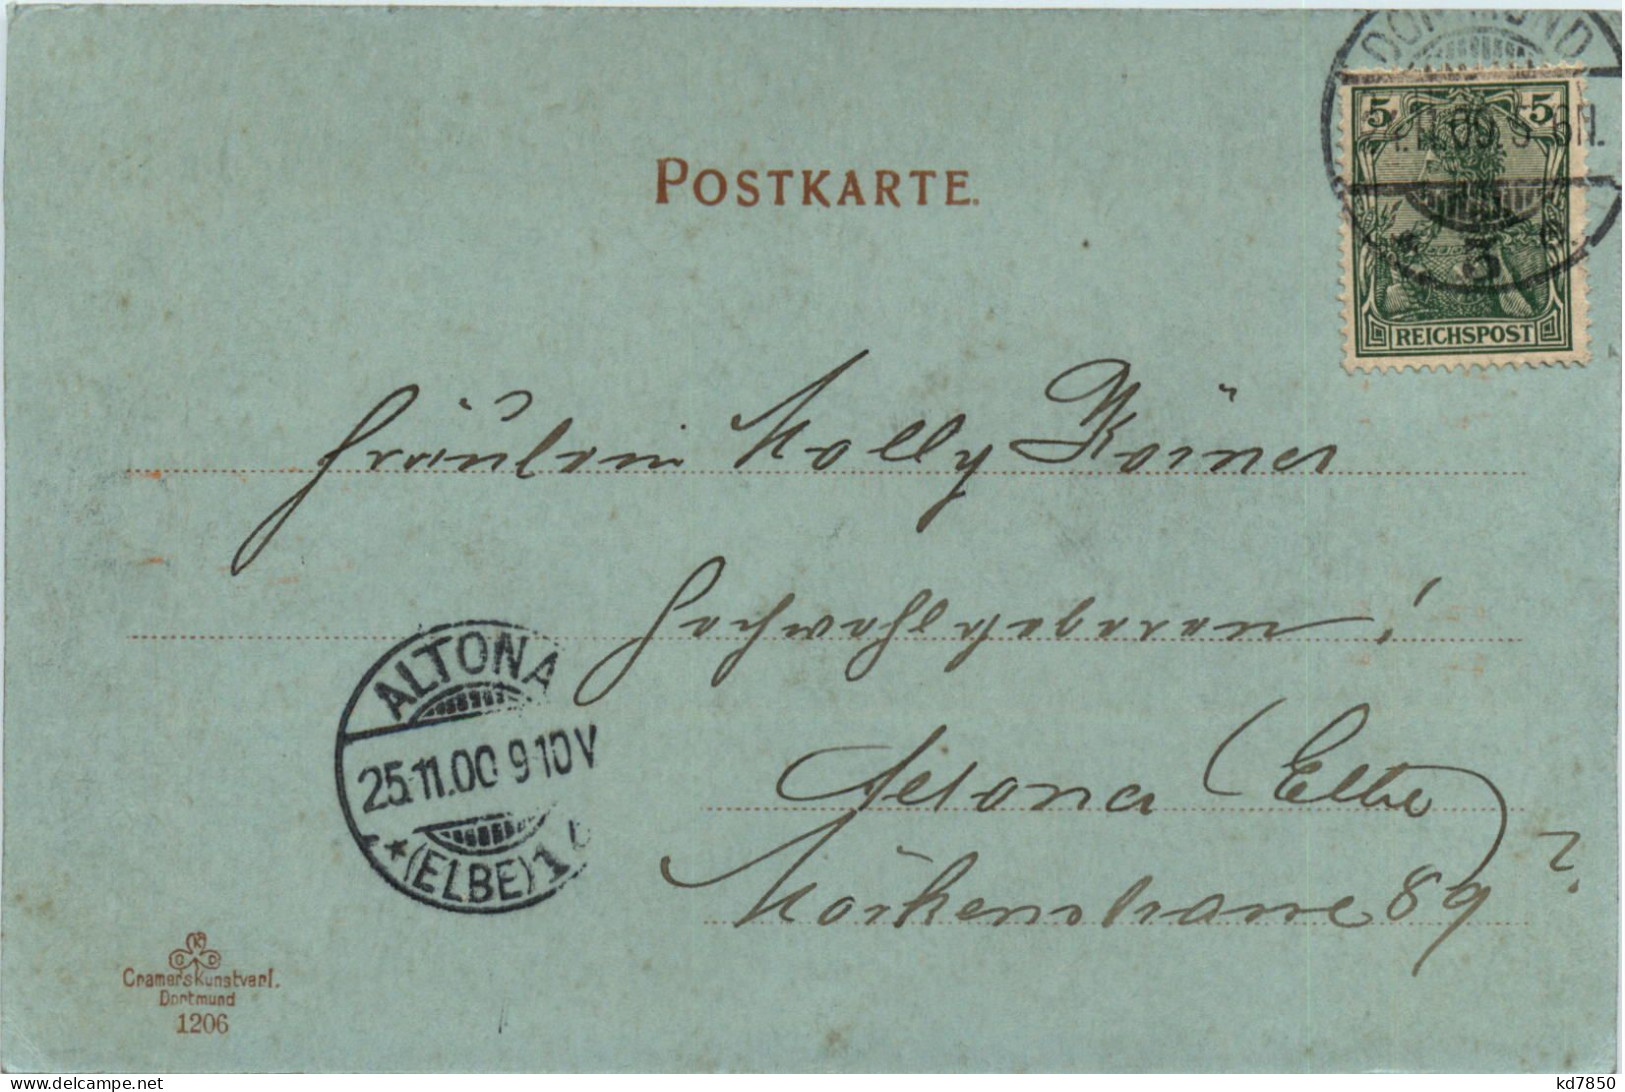 DORTMUND
5 5
11.00. 5-6N.
* 3 a
REICHSPOST
POSTKARTE.
Fräulein Molly Körner
Hochwohlgeboren!
Altona (Elbe)
Mörkenstrasse 89?
ALTONA
25.11.00 9-10V
* (ELBE) 1
K
C D
Cramers Kunstverl.
Dortmund
1206
Delcampe.net
kd7850